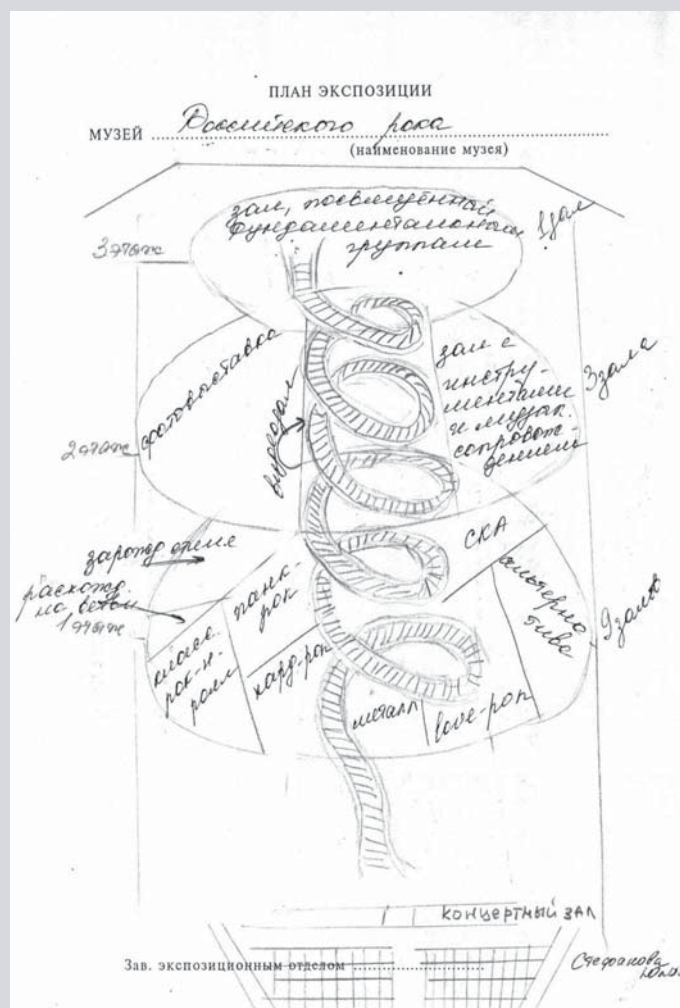 ПЛАН ЭКСПОЗИЦИИ
МУЗЕЙ Российского рока
(наименование музея)
зал, посвящённый
фундаментальным
группам
1зал
3этаж
фотовыставка
видеозал
зал с
инстру-
ментами
и музык.
сопровож-
дением
3зала
2этаж
зарожд
расхожд.
на ветви
1этаж
класс.
рок-н-
ролл
панк-
рок
хард-рок
металл
love-рок
СКА
альтерна
тива
9залов
КОНЦЕРТНЫЙ ЗАЛ
Зав. экспозиционным отделом
Стефанова
Юлия